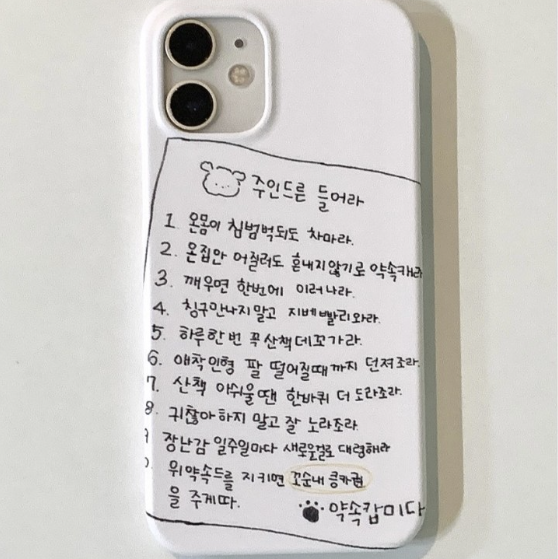 주인드른 들어라
1. 온몸이 침범벅되도 차마라.
2. 온집안 어질러도 혼내지않기로 약속캐라
3. 깨우면 한번에 이러나라.
4. 칭구만나지말고 지베빨리와라.
5. 하루한번 꼭산책데꼬가라.
6. 애착인형 팔 떨어질때까지 던져조라.
7. 산책 아쉬울땐 한바퀴 더 도라조라.
8. 귀찮아하지 말고 잘 노라조라.
9 장난감 일주일마다 새로운걸로 대령해라
0. 위약속드를 지키면 꼬순내 킁카권
을 주게따.
약속캅미다